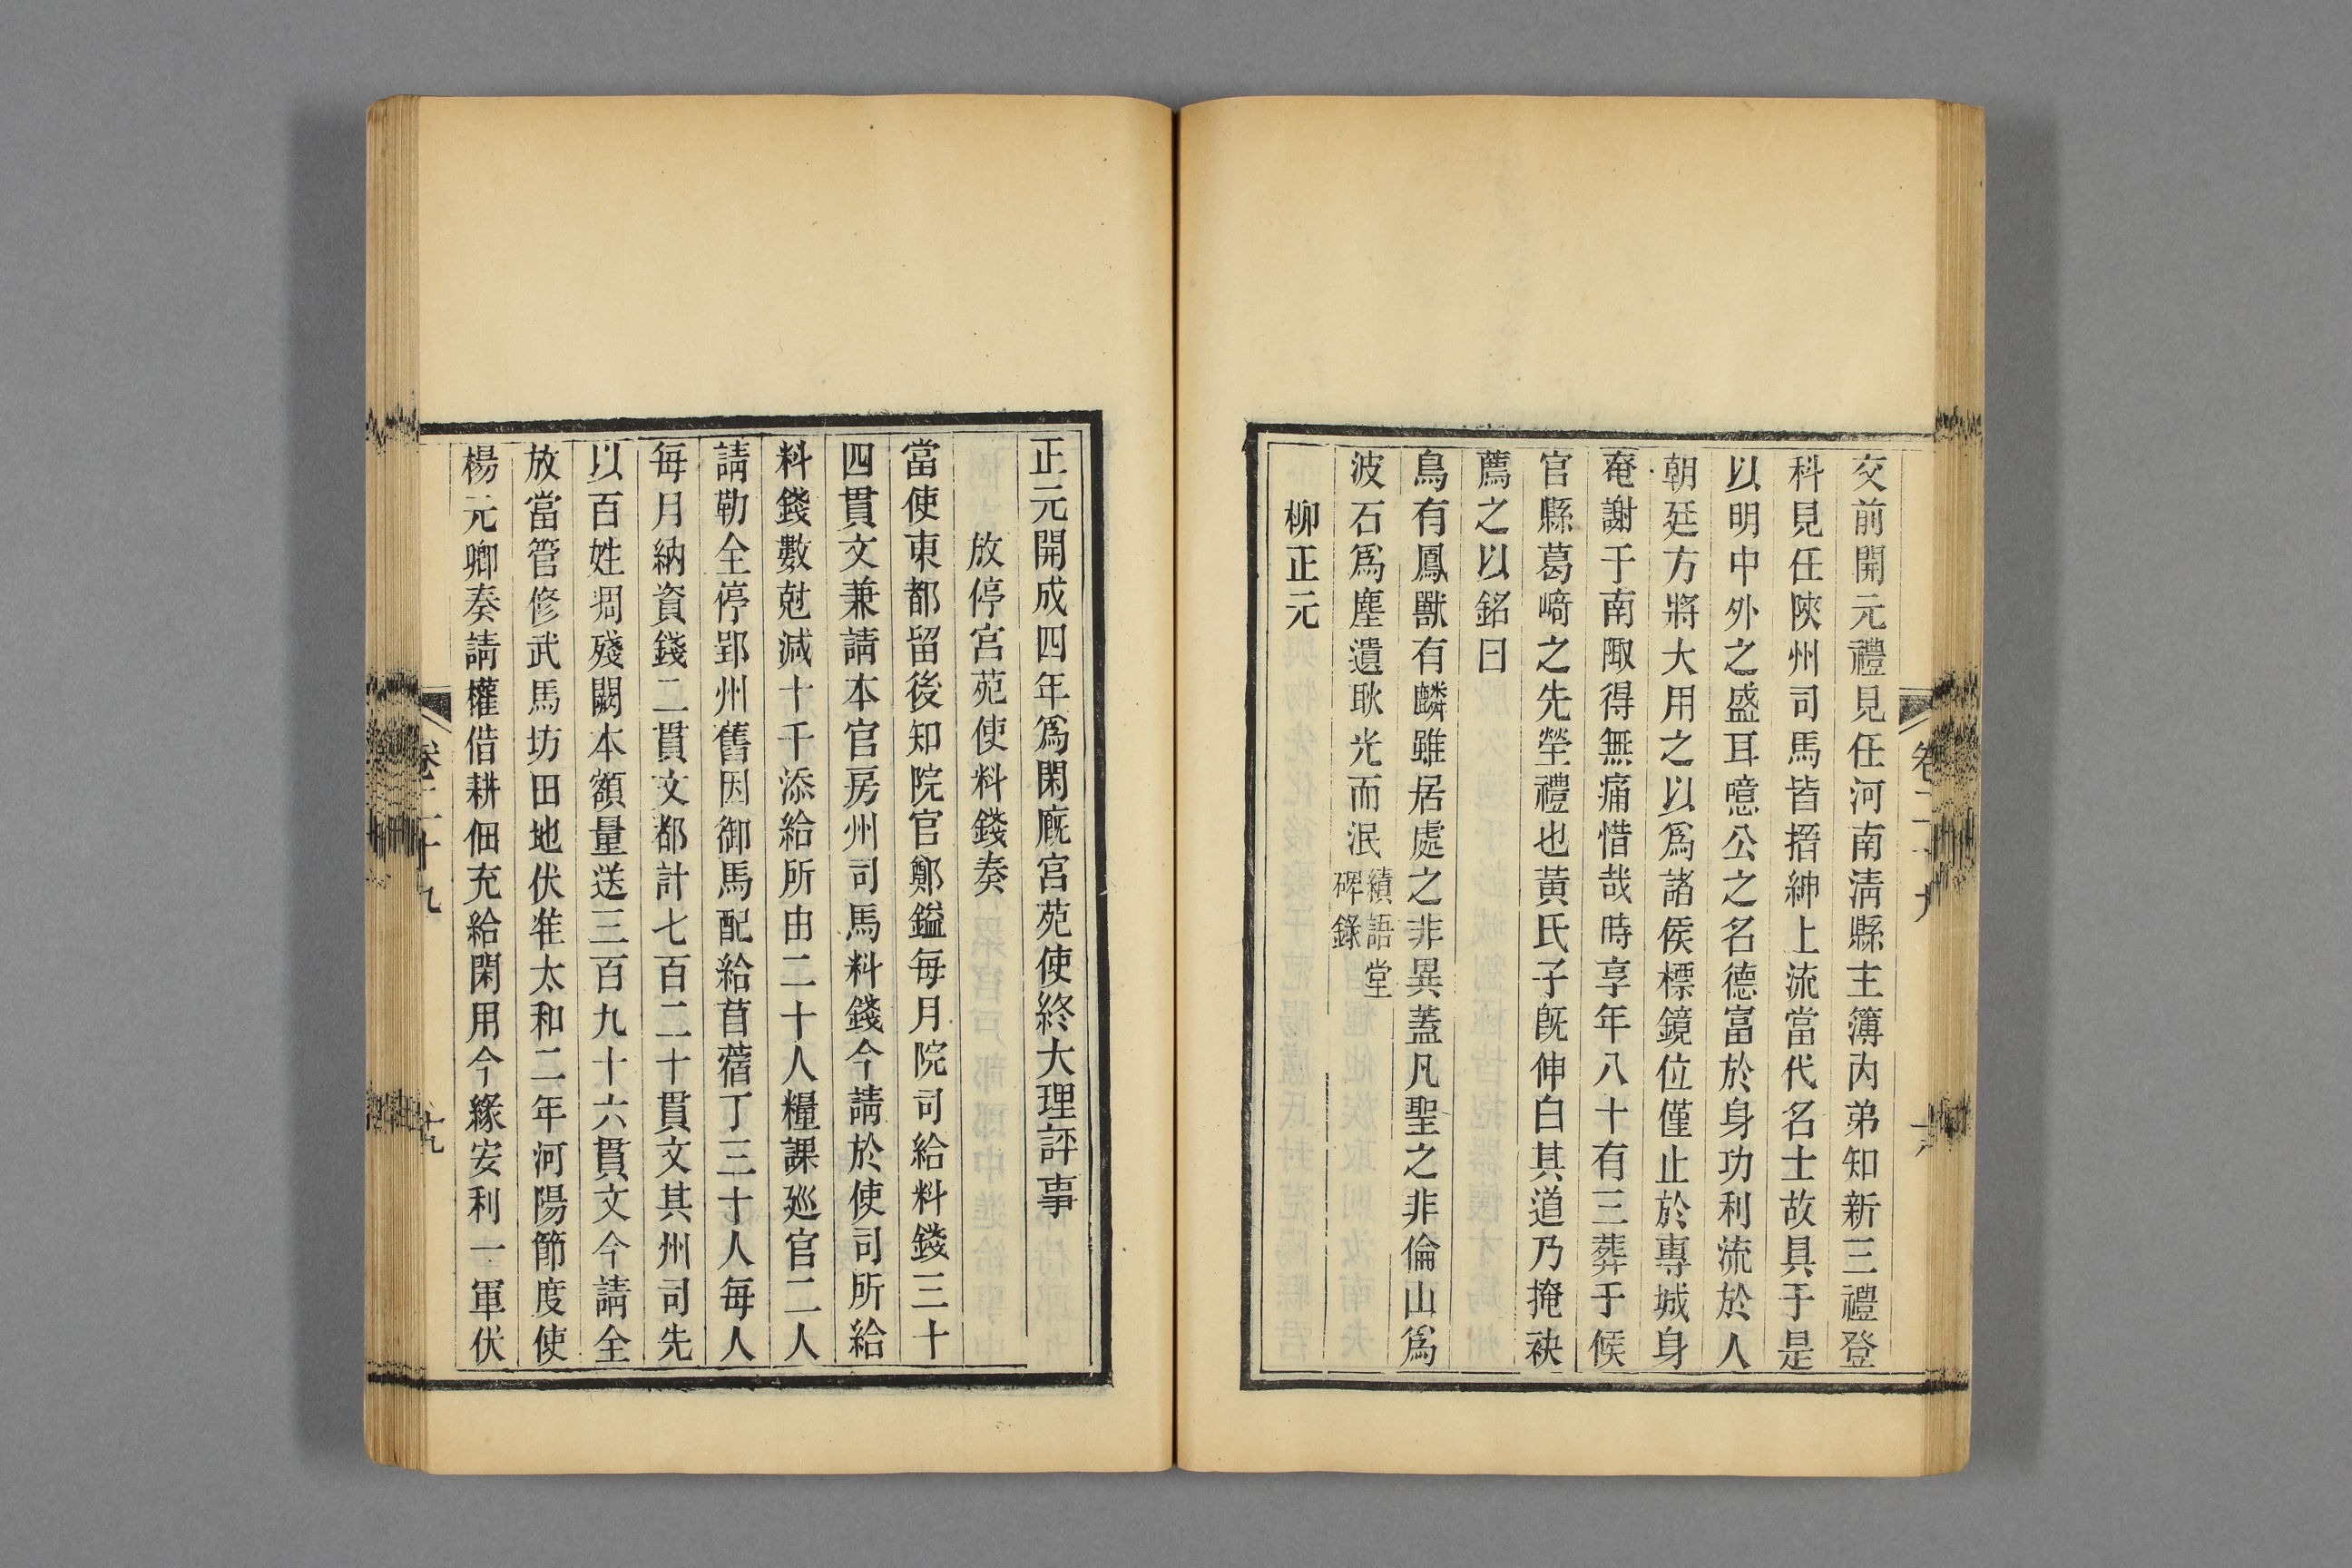 交前開元禮見任河南淸縣主簿內弟知新三禮登
科見任陝州司馬皆搢紳上流當代名士故具于是
以明中外之盛耳噫公之名德富於身功利流於人
朝廷方將大用之以爲諸侯標鏡位僅止於專城身
奄謝于南陬得無痛惜哉時享年八十有三葬于候
官縣葛崎之先塋禮也黃氏子旣伸白其道乃掩袂
薦之以銘曰
鳥有鳳獸有麟雖居處之非異蓋凡聖之非倫山爲
波石爲塵遺耿光而泯績語堂碑錄
柳正元
正元開成四年爲閑廐宮苑使終大理評事
放停宮苑使料錢奏
當使東都留後知院官鄭鎰每月院司給料錢三十
四貫文兼請本官房州司馬料錢今請於使司所給
料錢數尅減十千添給所由二十人糧課廵官二人
請勒全停郢州舊因御馬配給苜蓿丁三十人每人
每月納資錢二貫文都計七百二十貫文其州司先
以百姓凋殘闕本額量送三百九十六貫文今請全
放當管修武馬坊田地伏准太和二年河陽節度使
楊元卿奏請權借耕佃充給閑用今緣安利一軍伏
卷二十九